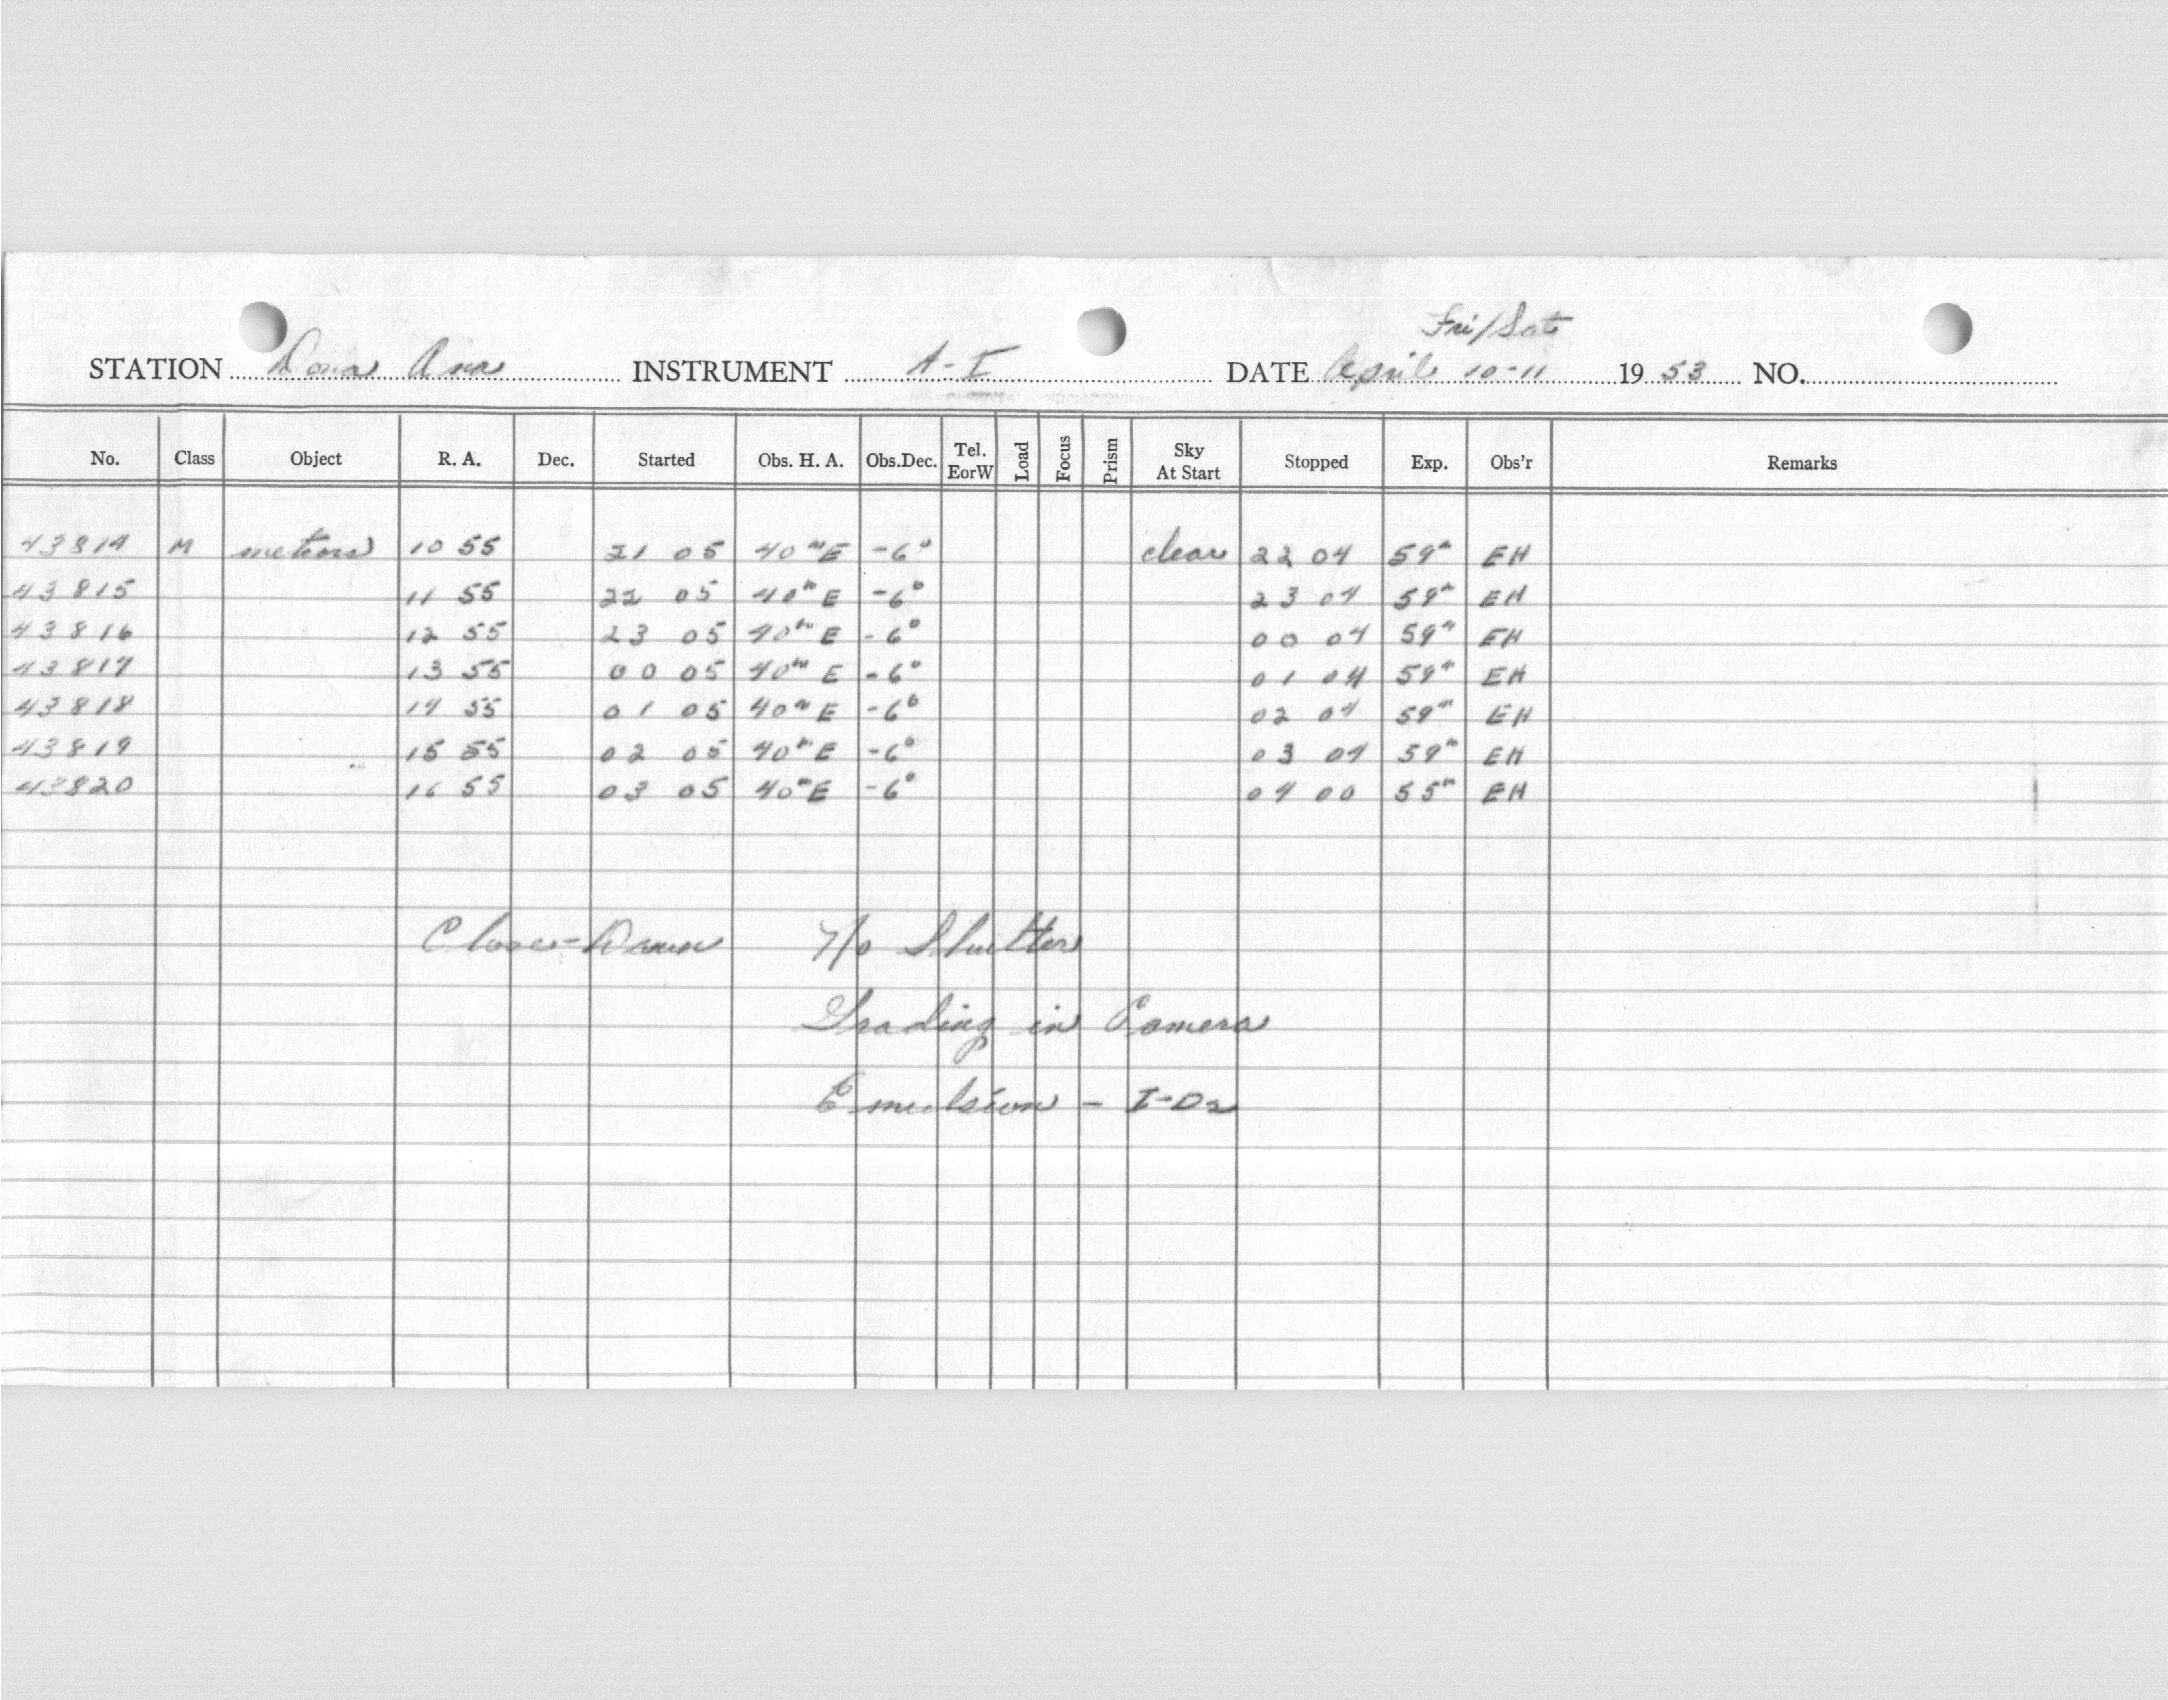 Fri/Sat
STATION Dona Ana INSTRUMENT A-I DATE April 10-11 19 53 NO.
No. Class Object R. A. Dec. Started Obs. H. A. Obs.Dec. Tel. EorW Load Focus Prism Sky At Start Stopped Exp. Obs'r Remarks
43814 M meteors 10 55 21 05 40m E -6° clear 22 04 59m EH
43815 11 55 22 05 40m E -6° 23 04 59m EH
43816 12 55 23 05 40m E -6° 00 04 59m EH
43817 13 55 00 05 40m E -6° 01 04 59m EH
43818 14 55 01 05 40m E -6° 02 04 59m EH
43819 15 55 02 05 40m E -6° 03 04 59m EH
43820 16 55 03 05 40m E -6° 04 00 55m EH
Close-Dawn No Shutter
in Camera
Emulsion - I-D2